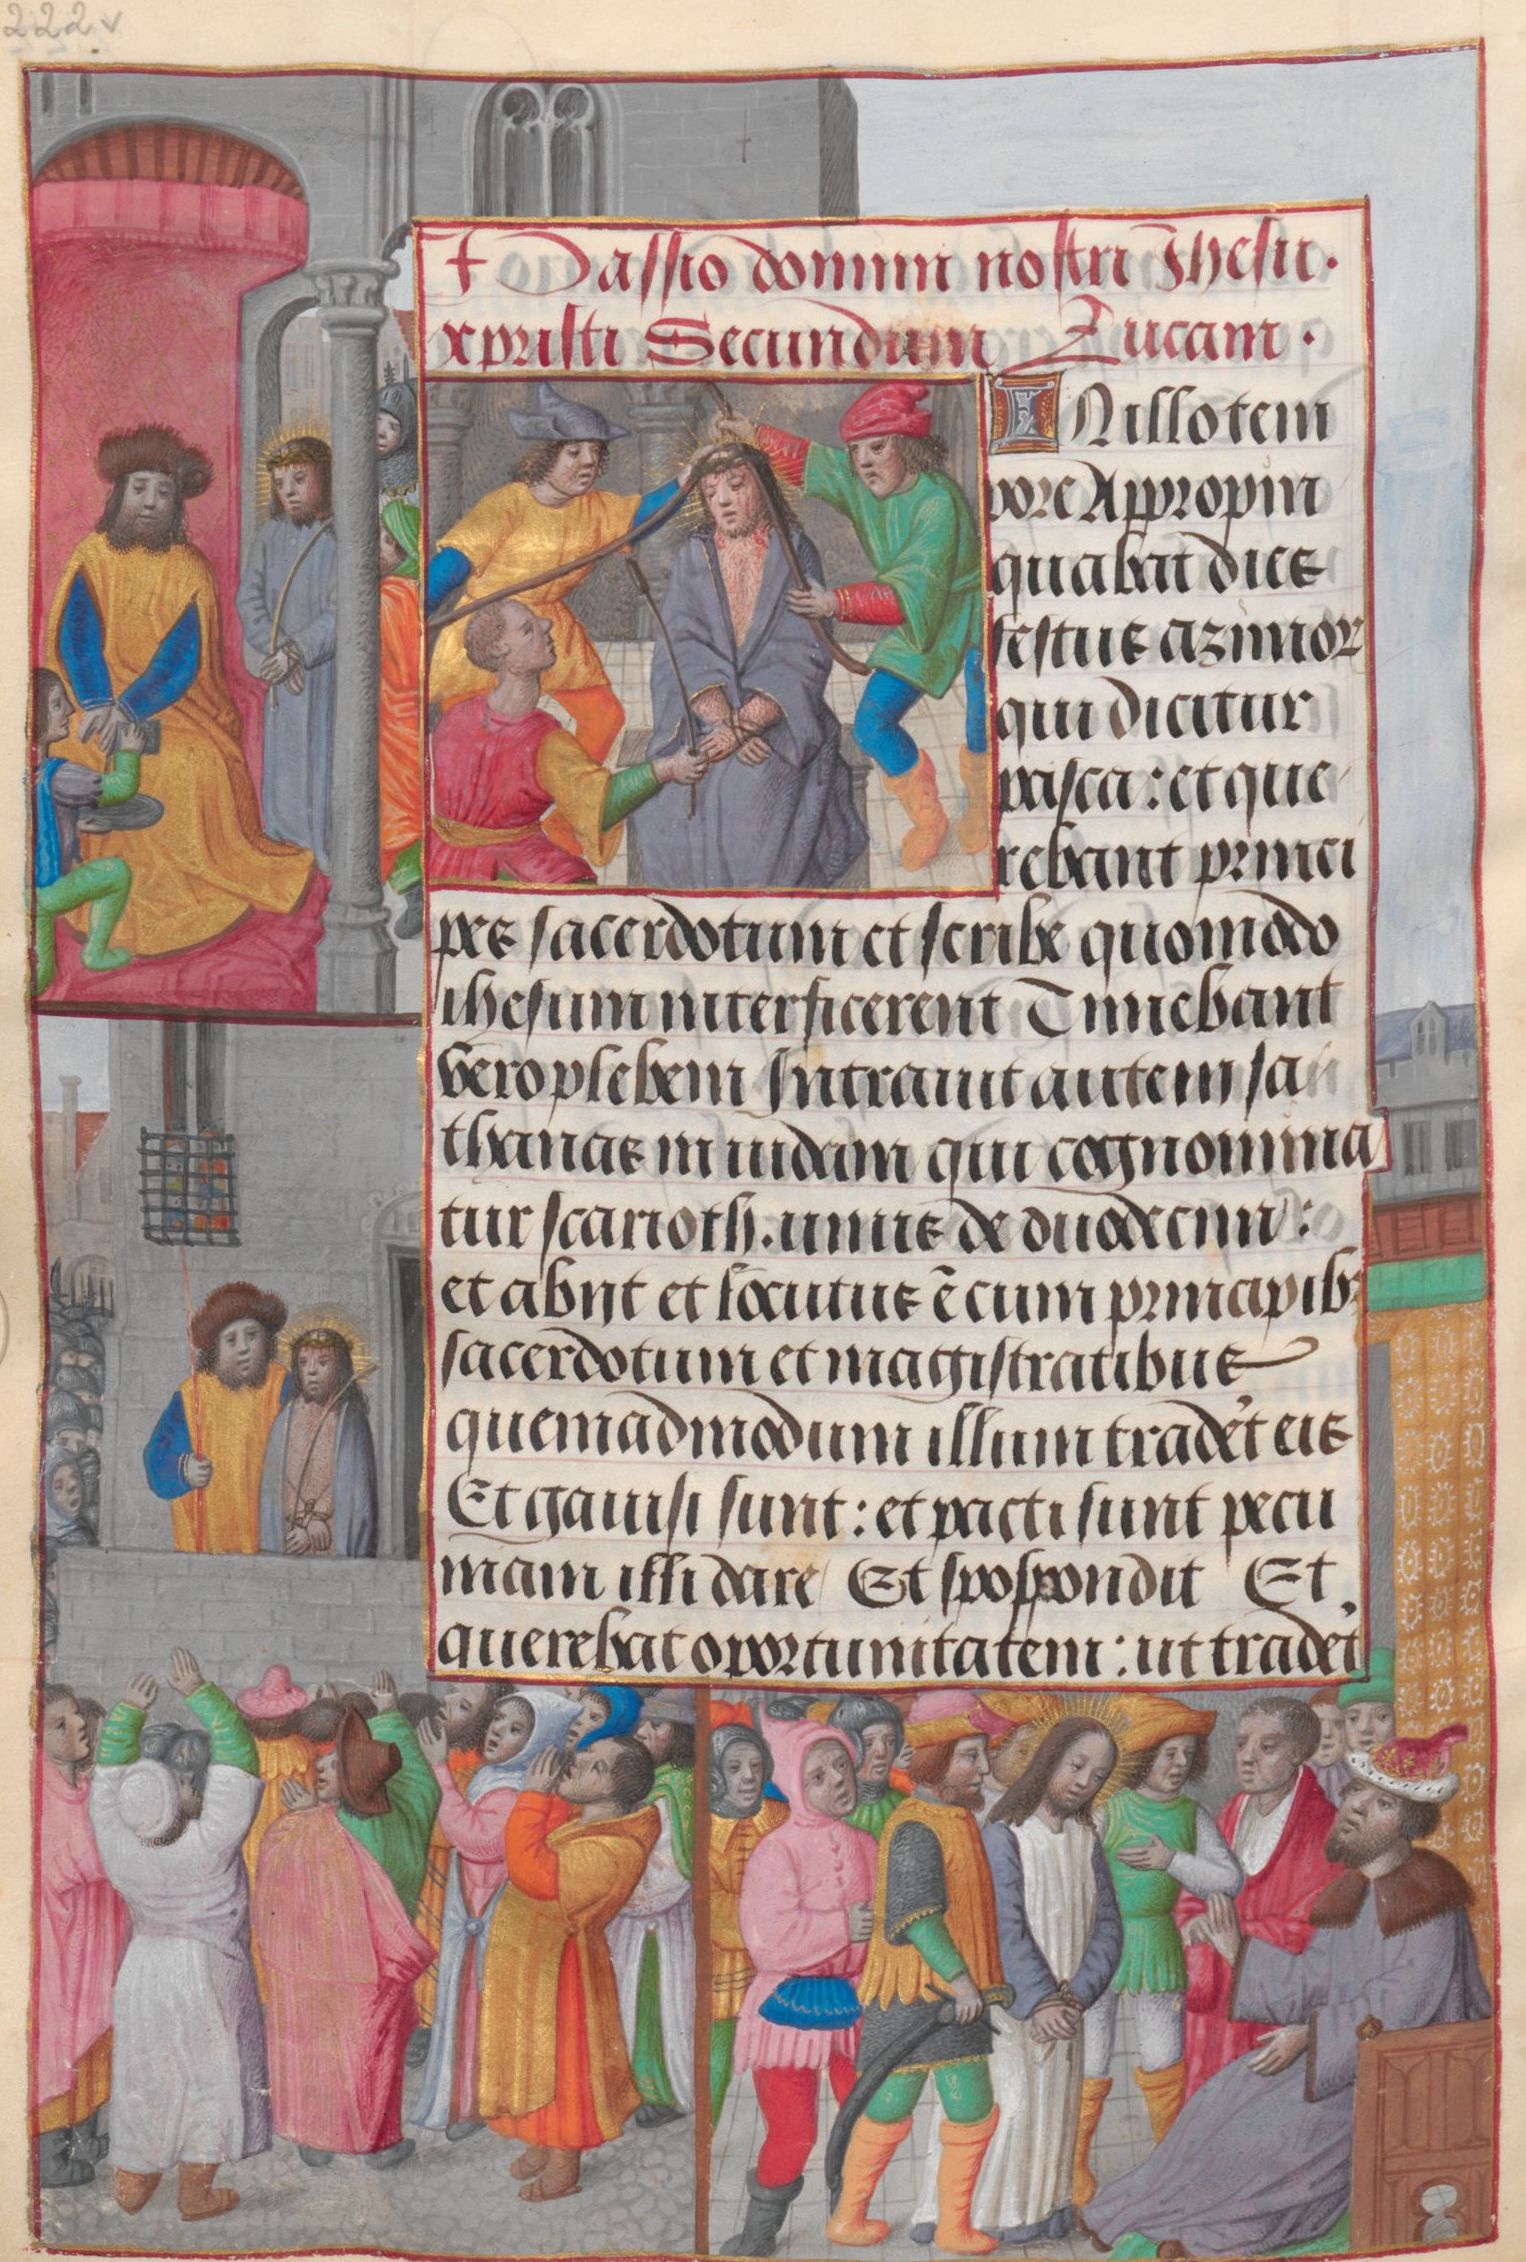 222v
+ Passio domini nostri Jhesu.
xpristi Secundum Lucam.
IN illo tem
pore Appropin
quabat dies
festus azimor
qui dicitur
pasca: et que
rebant princi
pes sacerdotum et scribe quomodo
ihesum interficerent Timebant
vero plebem Intrauit autem sa
thanas in iudam qui cognomina
tur scarioth. unus de duodecim:
et abijt et locutus ē cum principib
sacerdotum et magistratibus
quemadmodum illum traderet eis
Et gauisi sunt: et pacti sunt pecu
niam illi dare Et spospondit Et
querebat oportunitatem: ut tradet